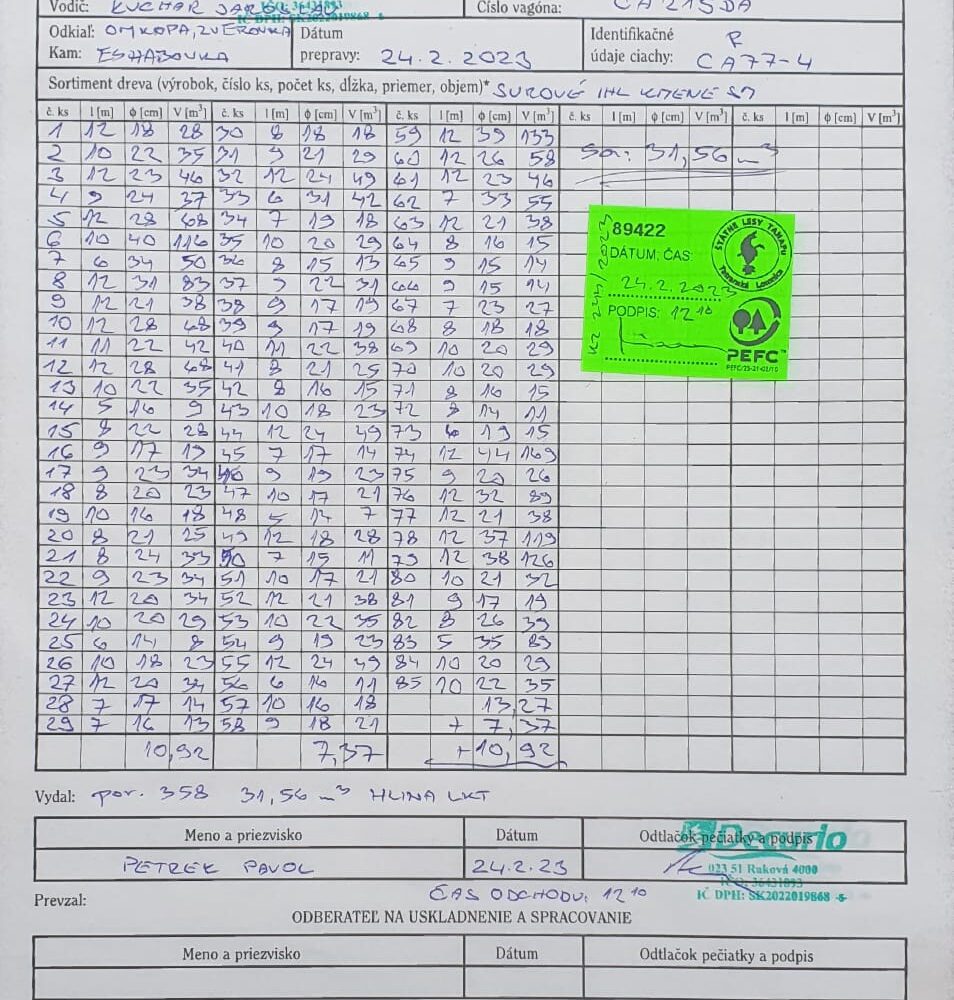 Vodič: KUCHAR JAROSLAV Číslo vagóna: CA 215DA
IČ DPH: SK2022019868 -6-
Odkiaľ: OM KOPA, ZVEROVKA Dátum Identifikačné R
Kam: ESHABOVKA prepravy: 24.2.2023 údaje ciachy: CA77-4
Sortiment dreva (výrobok, číslo ks, počet ks, dĺžka, priemer, objem)* SUROVÉ IHL KMENE
č. ks l [m] ϕ [cm] V [m³] č. ks l [m] ϕ [cm] V [m³] č. ks l [m] ϕ [cm] V [m³] č. ks l [m] ϕ [cm] V [m³] č. ks l [m] ϕ [cm] V [m³]
1 12 18 28 30 8 18 18 59 12 39 133
2 10 22 35 31 9 21 29 60 12 26 58 Sa: 31,56 m³
3 12 23 46 32 12 24 49 61 12 23 46
4 9 24 37 33 6 31 42 62 7 33 55
5 12 28 68 34 7 19 18 63 12 21 38
6 10 40 116 35 10 20 29 64 8 16 15
7 6 34 50 36 8 15 13 65 9 15 14
8 12 31 83 37 9 22 31 66 9 15 14
9 12 21 38 38 9 17 19 67 7 23 27
10 12 28 68 39 9 17 19 68 8 18 18
11 11 22 42 40 11 22 38 69 10 20 29
12 12 28 68 41 8 21 25 70 10 20 29
13 10 22 35 42 8 16 15 71 8 16 15
14 5 16 9 43 10 18 23 72 8 14 11
15 8 22 28 44 12 24 49 73 6 19 15
16 9 17 19 45 7 17 14 74 12 44 169
17 9 23 34 46 9 19 23 75 9 20 26
18 8 20 23 47 10 17 21 76 12 32 89
19 10 16 18 48 5 14 7 77 12 21 38
20 8 21 25 49 12 18 28 78 12 37 119
21 8 24 33 50 7 15 11 79 12 38 126
22 9 23 34 51 10 17 21 80 10 21 32
23 12 20 34 52 12 21 38 81 9 17 19
24 10 20 29 53 10 22 35 82 8 26 39
25 6 14 8 54 9 19 23 83 5 35 89
26 10 18 23 55 12 24 49 84 10 20 29
27 12 20 34 56 6 16 11 85 10 22 35
28 7 17 14 57 10 16 18 13,27
29 7 16 13 58 9 18 21 + 7,37
10,92 7,37 +10,92
89422
DÁTUM, ČAS:
24.2.2023
PODPIS: 12 10
ŠTÁTNE LESY TANAPU
Tatranská Lomnica
PEFC™
PEFC/23-21-02/10
Vydal: por. 358 31,56 m³ HLINA LKT
Meno a priezvisko Dátum Odtlačok pečiatky a podpis
Decurio
PETREK PAVOL 24.2.23
023 51 Raková 4000
IČO: 36431893
IČ DPH: SK2022019868 -6-
Prevzal: ČAS ODCHODU: 12 10
ODBERATEĽ NA USKLADNENIE A SPRACOVANIE
Meno a priezvisko Dátum Odtlačok pečiatky a podpis